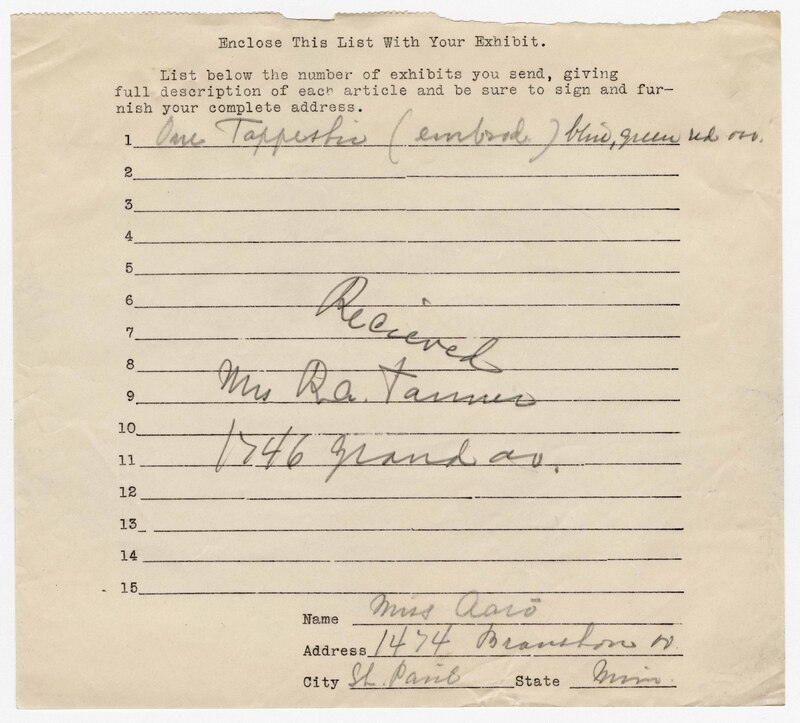 Enclose This List With Your Exhibit.
List below the number of exhibits you send, giving
full description of each article and be sure to sign and fur-
nish your complete address.
1 One Tappestri (embrod) blue, green red
2
3
4
5
6
Recieved
7
8
Mrs R.A. Tanner
9
10
1746 Grand av.
11
12
13
14
15
Name Miss
Address 1474 av
City St. Paul State Minn.